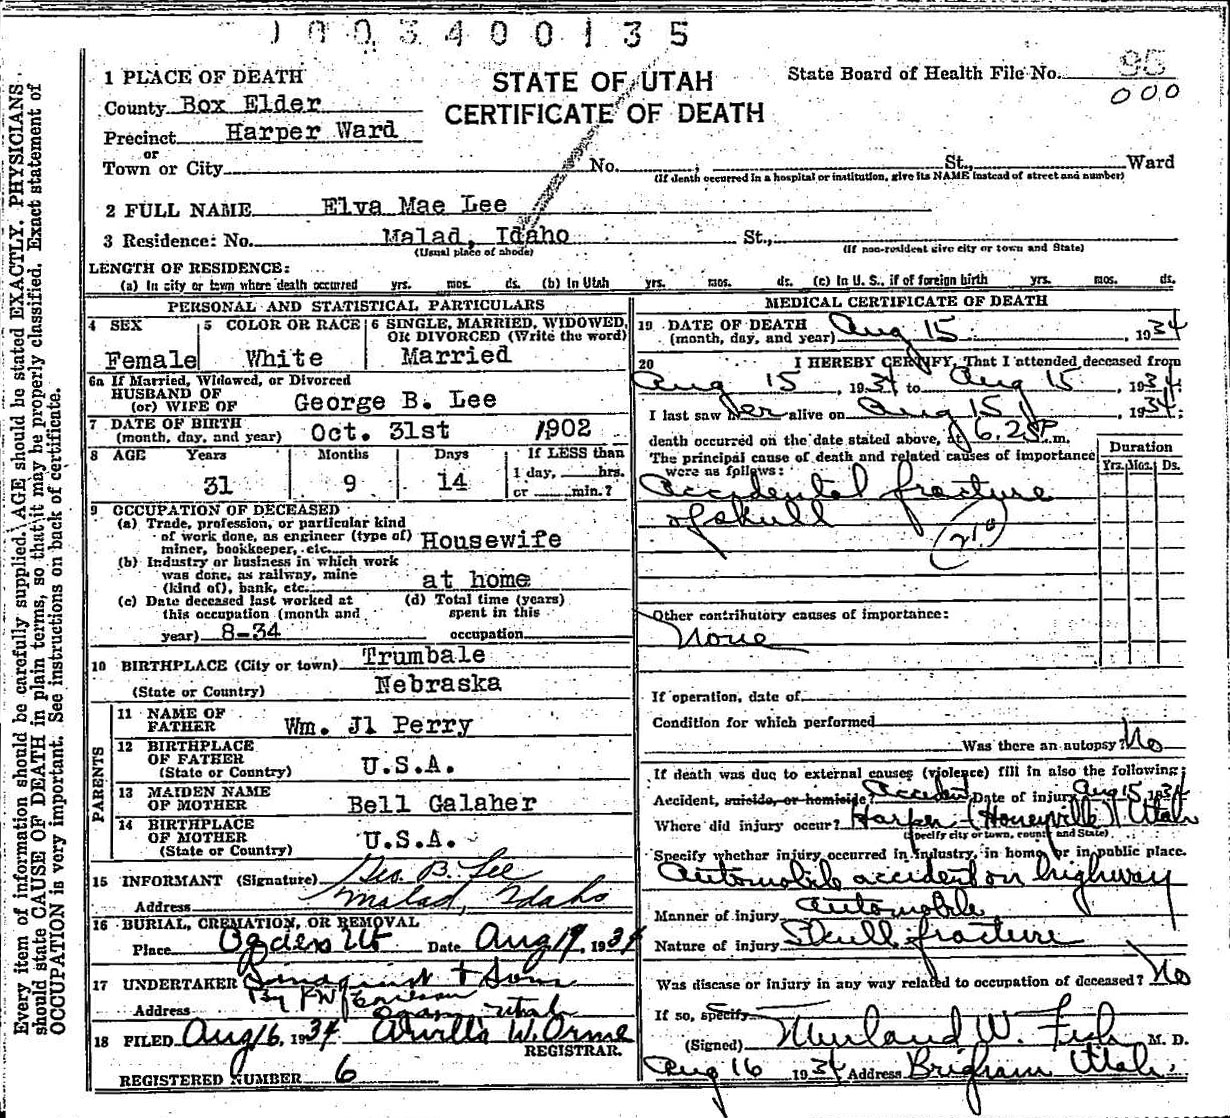 1003400135
1 PLACE OF DEATH
STATE OF UTAH
CERTIFICATE OF DEATH
State Board of Health File No. 95
000
County Box Elder
Precinct Harper Ward
or
Town or City No. St., Ward
(If death occurred in a hospital or institution, give its NAME instead of street and number)
2 FULL NAME Elva Mae Lee
3 Residence: No. Malad, Idaho St.,
(Usual place of abode) (If non-resident give city or town and State)
LENGTH OF RESIDENCE:
(a) In city or town where death occurred yrs. mos. ds. (b) In Utah yrs. mos. ds. (c) In U. S., if of foreign birth yrs. mos. ds.
PERSONAL AND STATISTICAL PARTICULARS
4 SEX
Female
5 COLOR OR RACE
White
6 SINGLE, MARRIED, WIDOWED,
OR DIVORCED (Write the word)
Married
6a If Married, Widowed, or Divorced
HUSBAND OF
(or) WIFE OF George B. Lee
7 DATE OF BIRTH
(month, day, and year) Oct. 31st 1902
8 AGE Years Months Days If LESS than
1 day, hrs.
31 9 14 or min.?
9 OCCUPATION OF DECEASED
(a) Trade, profession, or particular kind
of work done, as engineer (type of)
miner, bookkeeper, etc. Housewife
(b) Industry or business in which work
was done, as railway, mine
(kind of), bank, etc. at home
(c) Date deceased last worked at
this occupation (month and
year) 8-34
(d) Total time (years)
spent in this
occupation
10 BIRTHPLACE (City or town) Trumbale
(State or Country) Nebraska
PARENTS
11 NAME OF
FATHER Wm. Jl Perry
12 BIRTHPLACE
OF FATHER
(State or Country) U.S.A.
13 MAIDEN NAME
OF MOTHER Bell Galaher
14 BIRTHPLACE
OF MOTHER
(State or Country) U.S.A.
15 INFORMANT (Signature) Geo. B. Lee
Address Malad, Idaho
16 BURIAL, CREMATION, OR REMOVAL
Place Ogden Ut Date Aug 19, 1934
17 UNDERTAKER Lindquist & Sons
By
Address Ogden, Utah
18 FILED Aug 16, 1934 Arvilla W. Orme
REGISTRAR.
REGISTERED NUMBER 6
MEDICAL CERTIFICATE OF DEATH
19 DATE OF DEATH
(month, day, and year) Aug 15, 1934
20 I HEREBY CERTIFY, That I attended deceased from
Aug 15, 1934 to Aug 15, 1934
I last saw her alive on Aug 15, 1934;
death occurred on the date stated above, at 6.25 P.m.
The principal cause of death and related causes of importance
were as follows:
Duration
Yrs. Mos. Ds.
Accidental fracture
of skull
(210)
Other contributory causes of importance:
None
If operation, date of
Condition for which performed
Was there an autopsy? No
If death was due to external causes (violence) fill in also the following:
Accident, suicide, or homicide? Accident Date of injury Aug 15 1934
Where did injury occur? Harper - (Honeyville) Utah
(Specify city or town, county and State)
Specify whether injury occurred in industry, in home, or in public place.
Automobile accident on highway
Manner of injury Automobile
Nature of injury Skull fracture
Was disease or injury in any way related to occupation of deceased? No
If so, specify
(Signed) W. M. D.
Aug 16 1934 Address Brigham Utah
Every item of information should be carefully supplied. AGE should be stated EXACTLY. PHYSICIANS
should state CAUSE OF DEATH in plain terms, so that it may be properly classified. Exact statement of
OCCUPATION is very important. See instructions on back of certificate.